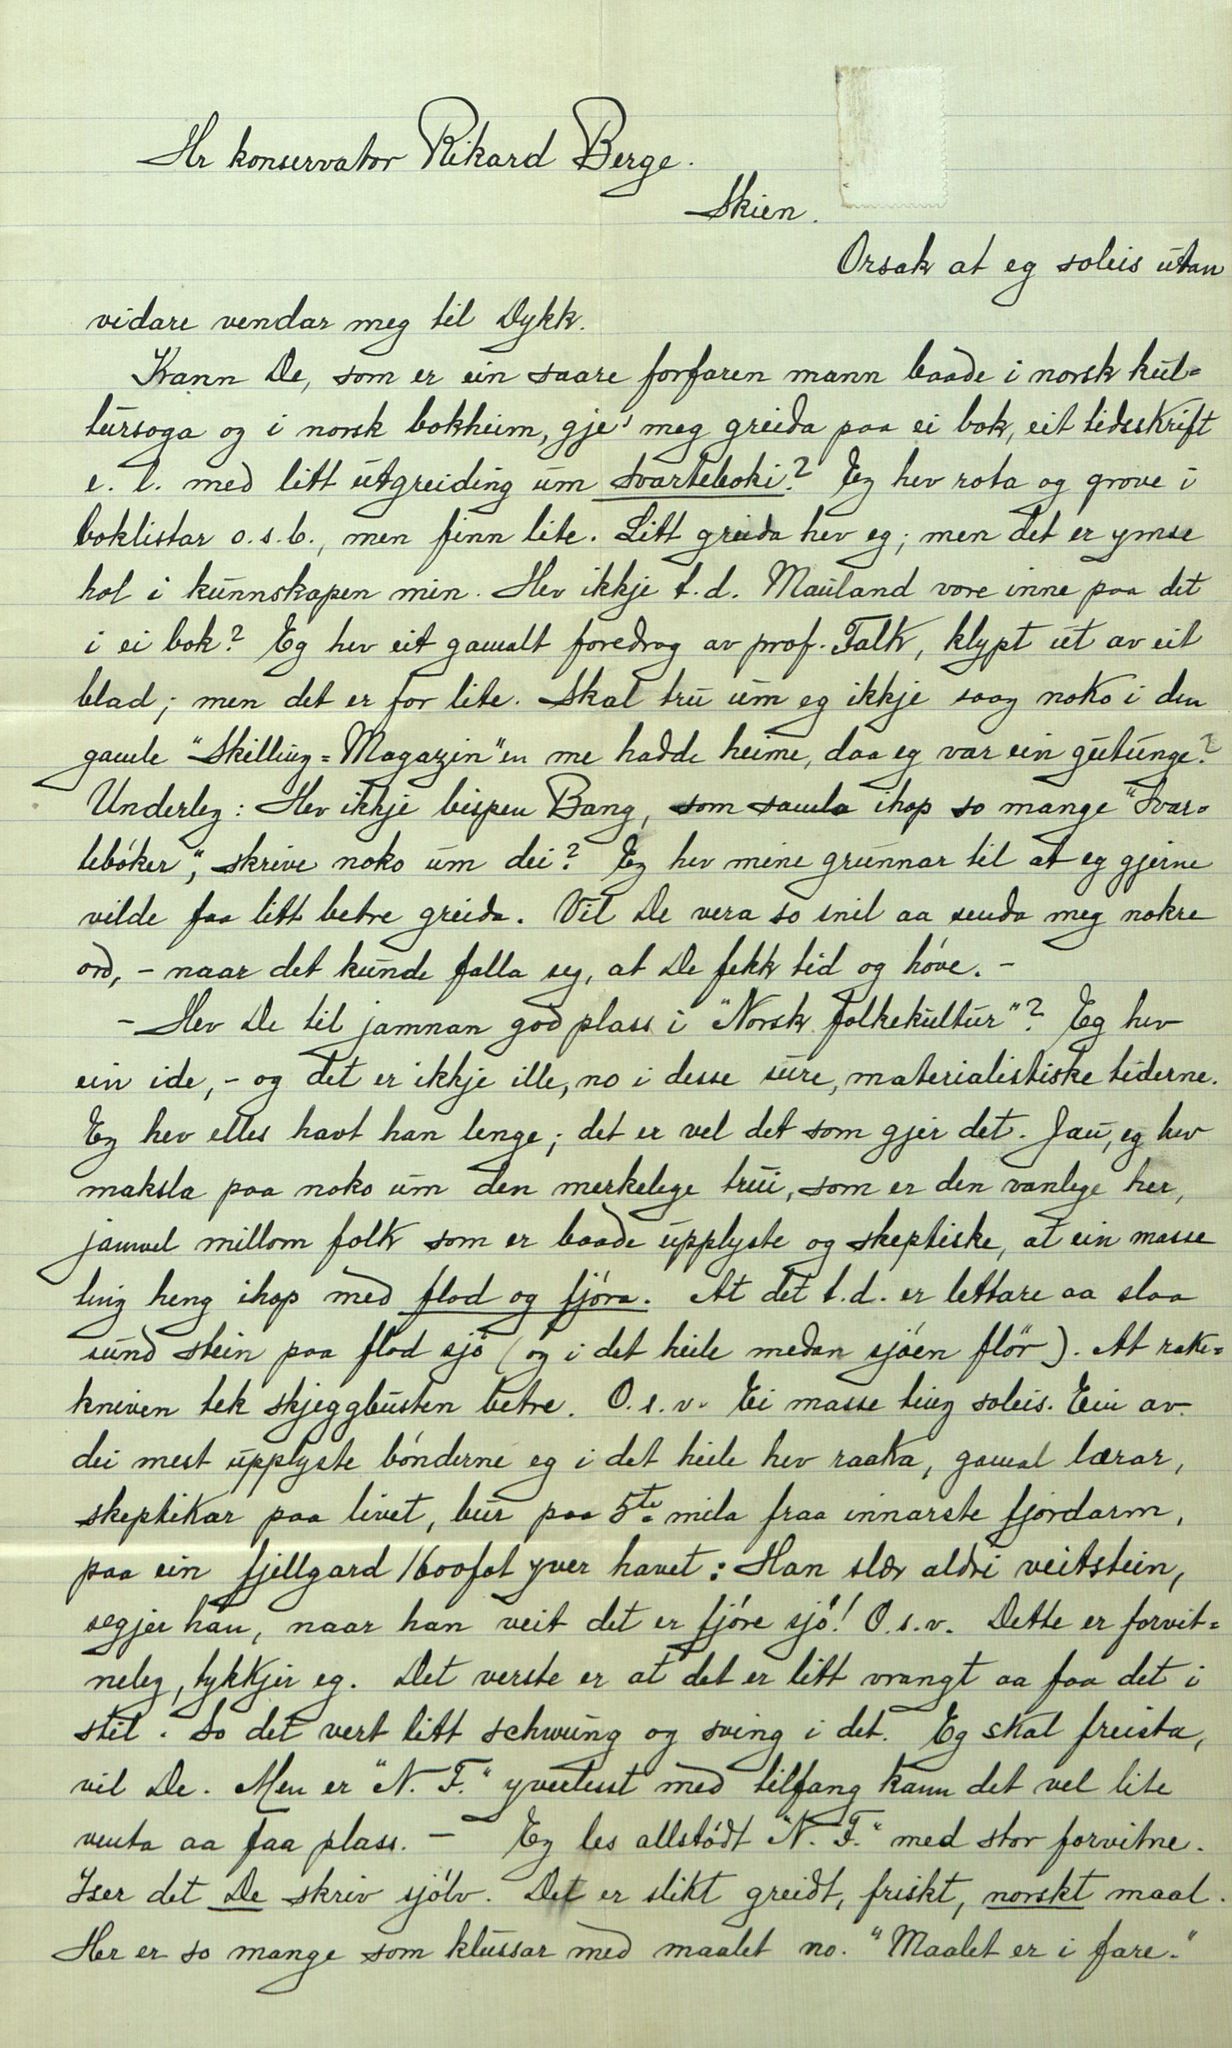 Hr konservator Rikard Berge.
Skien.
Orsak at eg soleis utan
vidare vendar meg til Dykk.
Kann De, som er ein saare forfaren mann baade i norsk kul=
tursoga og i norsk bokheim, gje' meg greida paa ei bok, eit tidsskrift
e. l. med litt utgreiding um svarteboki? Eg hev rota og grove i
boklistar o.s.b., men finn lite. Litt greida hev eg; men det er ymse
hol i kunnskapen min. Hev ikkje t.d. Mauland vore inne paa det
i ei bok? Eg hev eit gamalt foredrag av prof. Falk, klypt ut av eit
blad; men det er for lite. Skal tru um eg ikkje saag noko i den
gamle "Skilling=Magazin"en me hadde heime, daa eg var ein gutunge?
Underleg: Hev ikkje bispen Bang, som samla ihop so mange "Svar=
tebóker", skrive noko um dei? Eg hev mine grunnar til at eg gjerne
vilde faa litt betre greida. Vil De vera so snil aa senda meg nokre
ord, - naar det kunde falla seg, at De fekk tid og hóve. -
- Hev De til jamnan god plass i "Norsk folkekultur"? Eg hev
ein ide, - og det er ikkje ille, no i desse sure, materialistiske tiderne.
Eg hev elles havt han lenge; det er vel det som gjer det. Jau, eg hev
maksla paa noko um den merkelege trui, som er den vanlege her,
jamvel millom folk som er baade upplyste og skeptiske, at ein masse
ting heng ihop med flod og fjóra. At det t.d. er lettare aa slaa
sund stein paa flod sjó (og i det heile medan sjóen flór). At rake=
kniven tek skjeggbusten betre. O.s.v. Ei masse ting soleis. Ein av
dei mest upplyste bónderne eg i det heile hev raaka, gamal lærar,
skeptikar paa livet, bur paa 5te mila fraa innarste fjordarm,
paa ein fjellgard 1600fot yver havet: Han slær aldri veitstein,
segjer han, naar han veit det er fjóre sjó! O.s.v. Dette er forvit=
neleg, tykkjer eg. Det verste er at det er litt vrangt aa faa det i
stil. So det vert litt schwung og sving i det. Eg skal freista,
vil De. Men er "N. F." yverlesst med tilfang kann det vel lite
venta aa faa plass. - Eg les allstódt "N. F." med stor forvitne.
Iser det De skriv sjólv. Det er slikt greidt, friskt, norskt maal.
Her er so mange som klussar med maalet no. "Maalet er i fare."